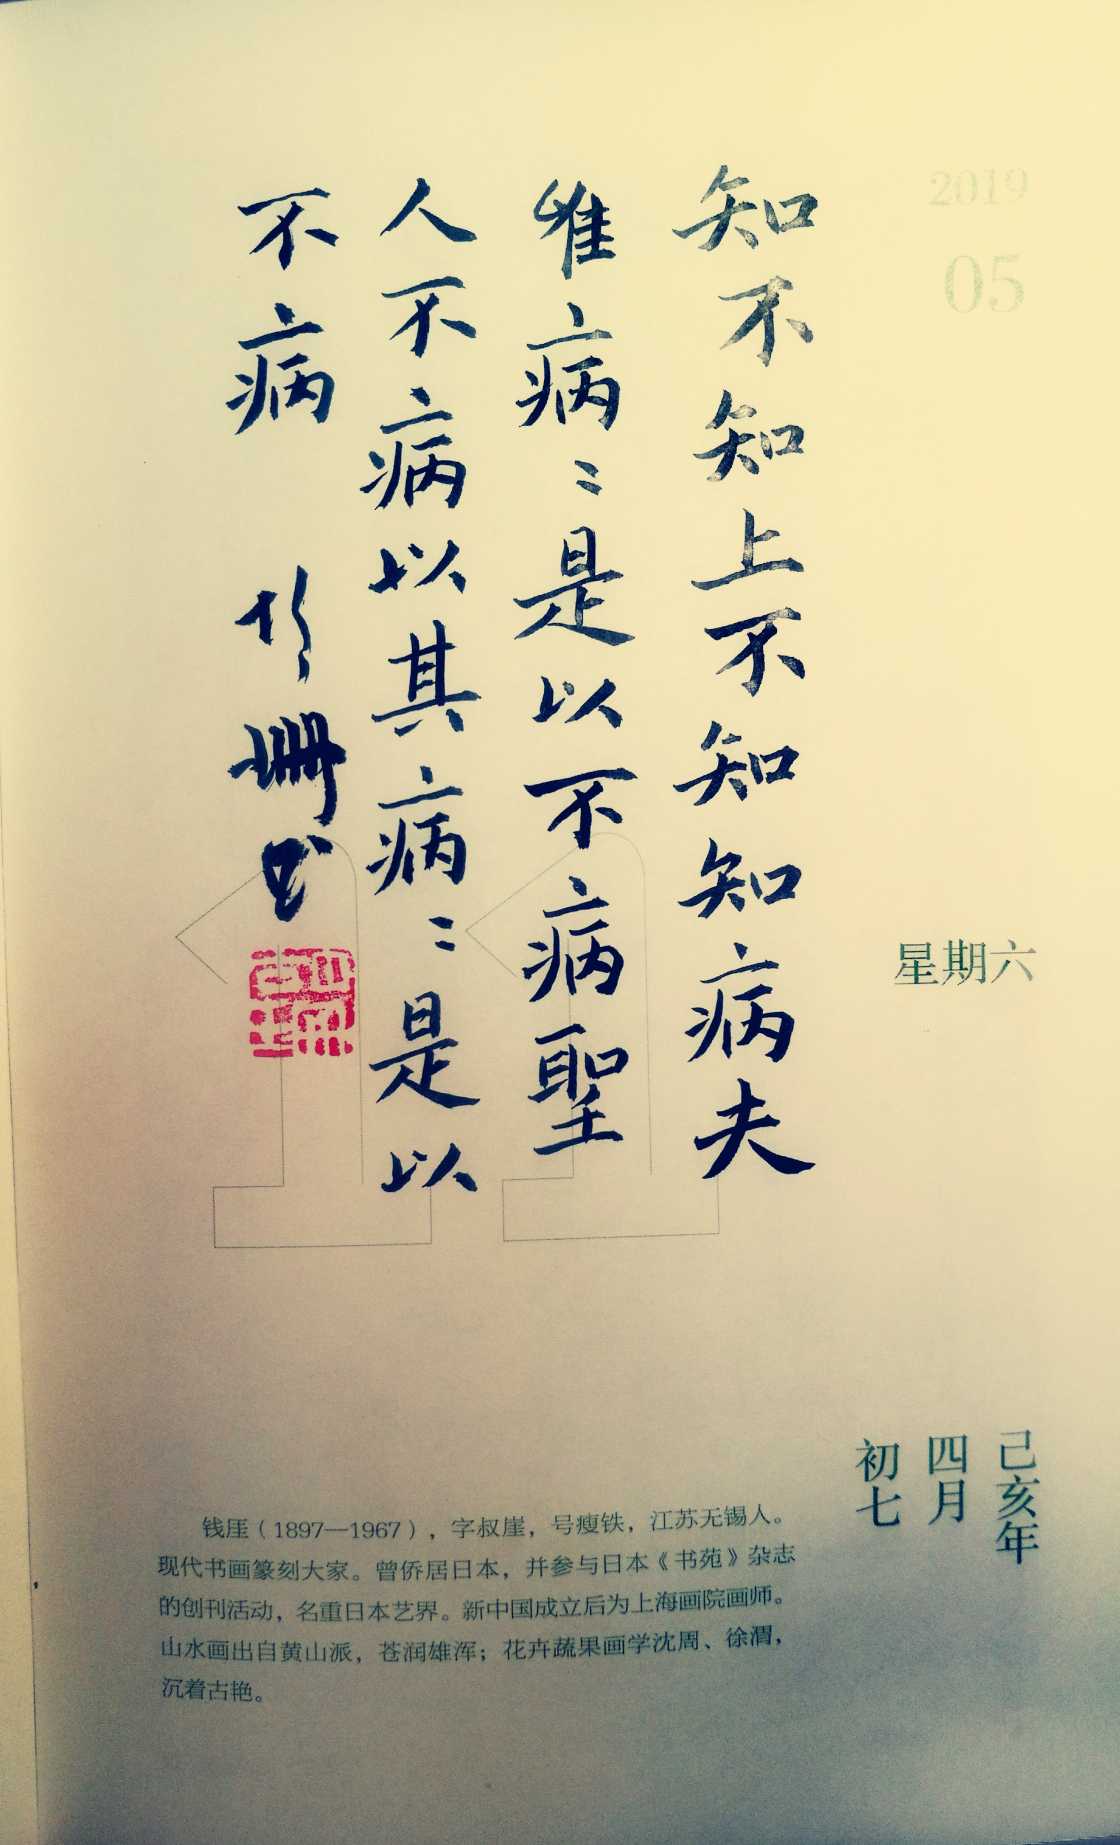 2019
05
知不知上不知知病夫
唯病〻是以不病聖
人不病以其病〻是以
不病
珊书
11
星期六
己亥年
四月
初七
钱厓（1897—1967），字叔崖，号瘦铁，江苏无锡人。
现代书画篆刻大家。曾侨居日本，并参与日本《书苑》杂志
的创刊活动，名重日本艺界。新中国成立后为上海画院画师。
山水画出自黄山派，苍润雄浑；花卉蔬果画学沈周、徐渭，
沉着古艳。